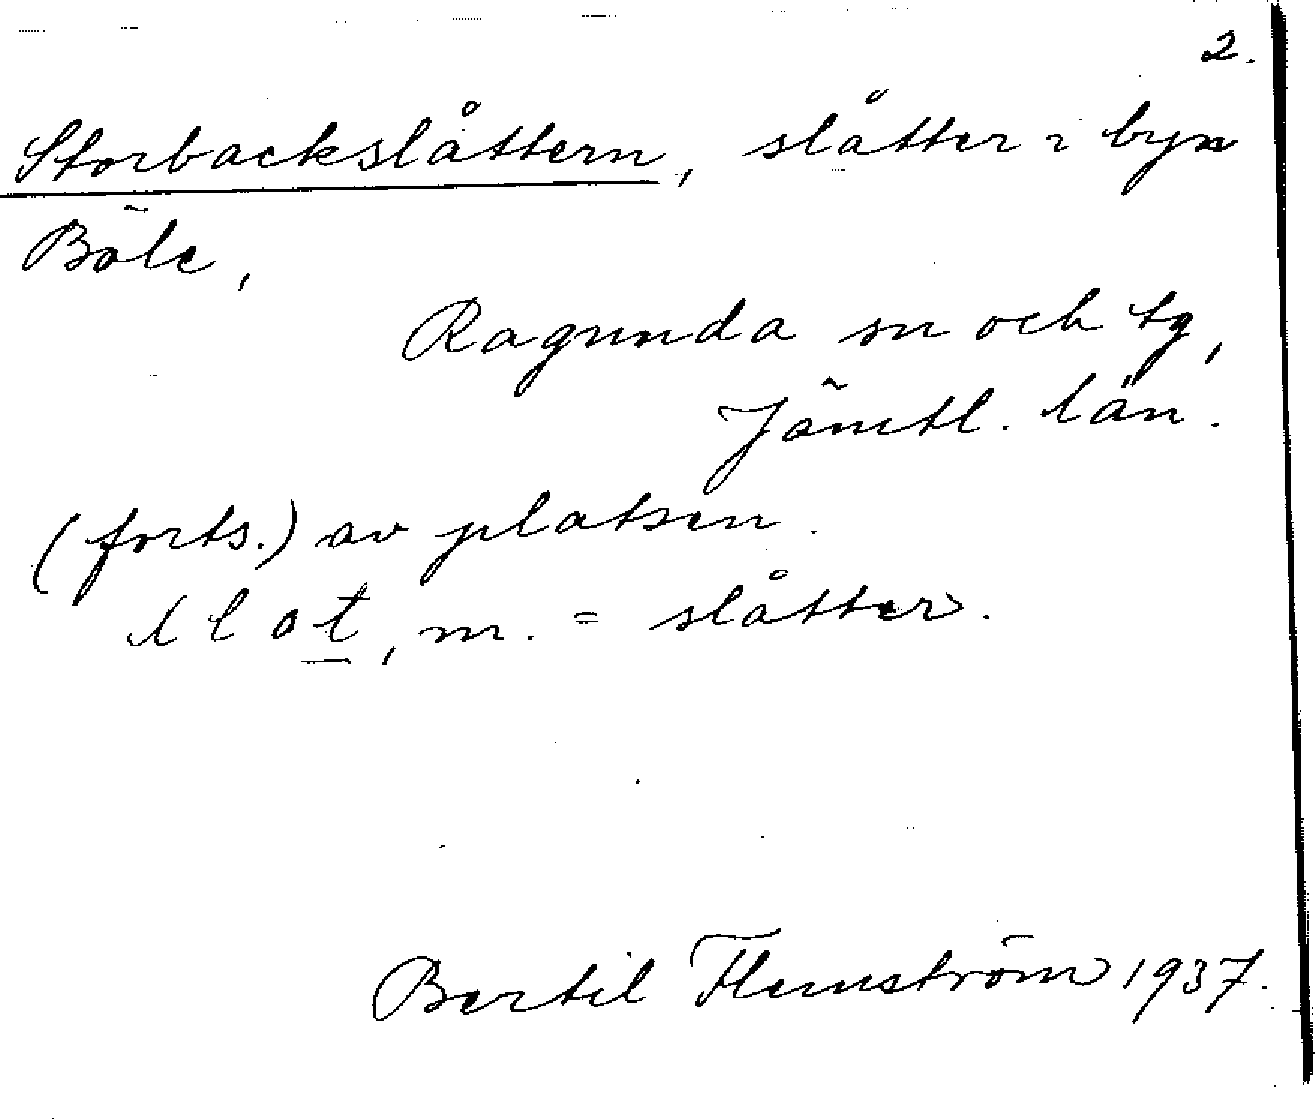 2.
Storbackslåttern, slåtter i byn
Böle,
Ragunda sn och tg,
Jämtl. län.
(forts.) av platsen.
slot, m. = slåtter.
Bertil Flemström 1937.